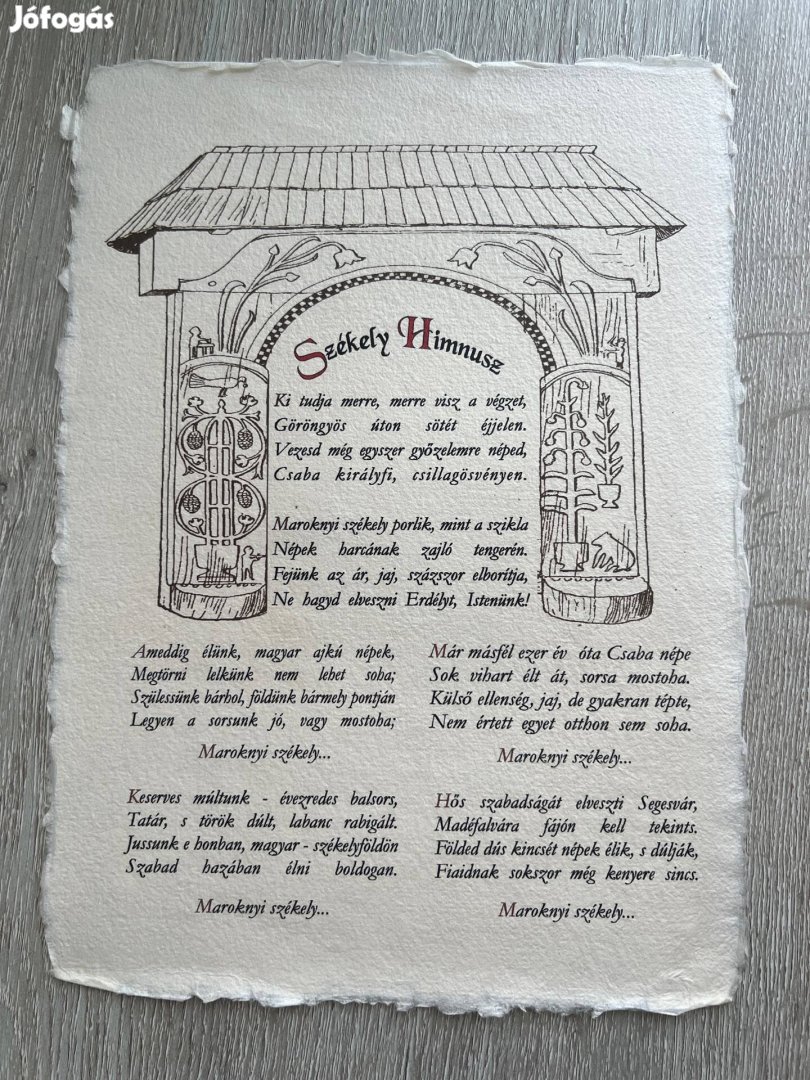 Jófogás
Székely Himnusz
Ki tudja merre, merre visz a végzet,
Göröngyös úton sötét éjjelen.
Vezesd még egyszer győzelemre néped,
Csaba királyfi, csillagösvényen.
Maroknyi székely porlik, mint a szikla
Népek harcának zajló tengerén.
Fejünk az ár, jaj, százszor elborítja,
Ne hagyd elveszni Erdélyt, Istenünk!
Ameddig élünk, magyar ajkú népek,
Megtörni lelkünk nem lehet soha;
Szülessünk bárhol, földünk bármely pontján
Legyen a sorsunk jó, vagy mostoha;
Maroknyi székely...
Keserves múltunk - évezredes balsors,
Tatár, s török dúlt, labanc rabigált.
Jussunk e honban, magyar - székelyföldön
Szabad hazában élni boldogan.
Maroknyi székely...
Már másfél ezer év óta Csaba népe
Sok vihart élt át, sorsa mostoha.
Külső ellenség, jaj, de gyakran tépte,
Nem értett egyet otthon sem soha.
Maroknyi székely...
Hős szabadságát elveszti Segesvár,
Madéfalvára fájón kell tekints.
Földed dús kincsét népek élik, s dúlják,
Fiaidnak sokszor még kenyere sincs.
Maroknyi székely...